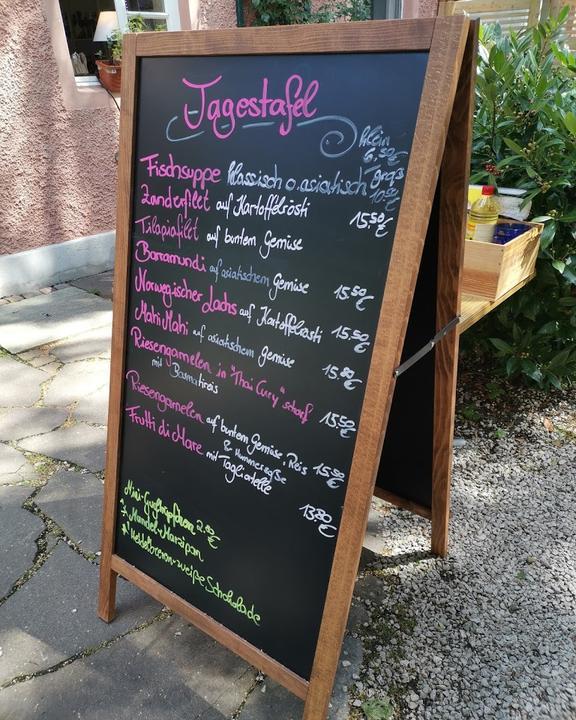 Tagestafel
klein
6.50€
Fischsuppe klassisch o. asiatisch groß
10.50€
Zanderfilet auf Kartoffelrösti 15.50€
Tilapiafilet auf buntem Gemüse
Barramundi auf asiatischem Gemüse 15.50€
Norwegischer Lachs auf Kartoffelrösti 15.50€
Mahi Mahi auf asiatischem Gemüse 15.50€
Riesengarnelen in "Thai Curry" scharf
mit Basmatireis 15.50€
Riesengarnelen auf buntem Gemüse, Reis 15.50€
& Hummersoße
Frutti di Mare mit Tagliatelle 13.80€
Mini-
* Mandel-Marzipan
* Heidelbeeren-weiße Schokolade